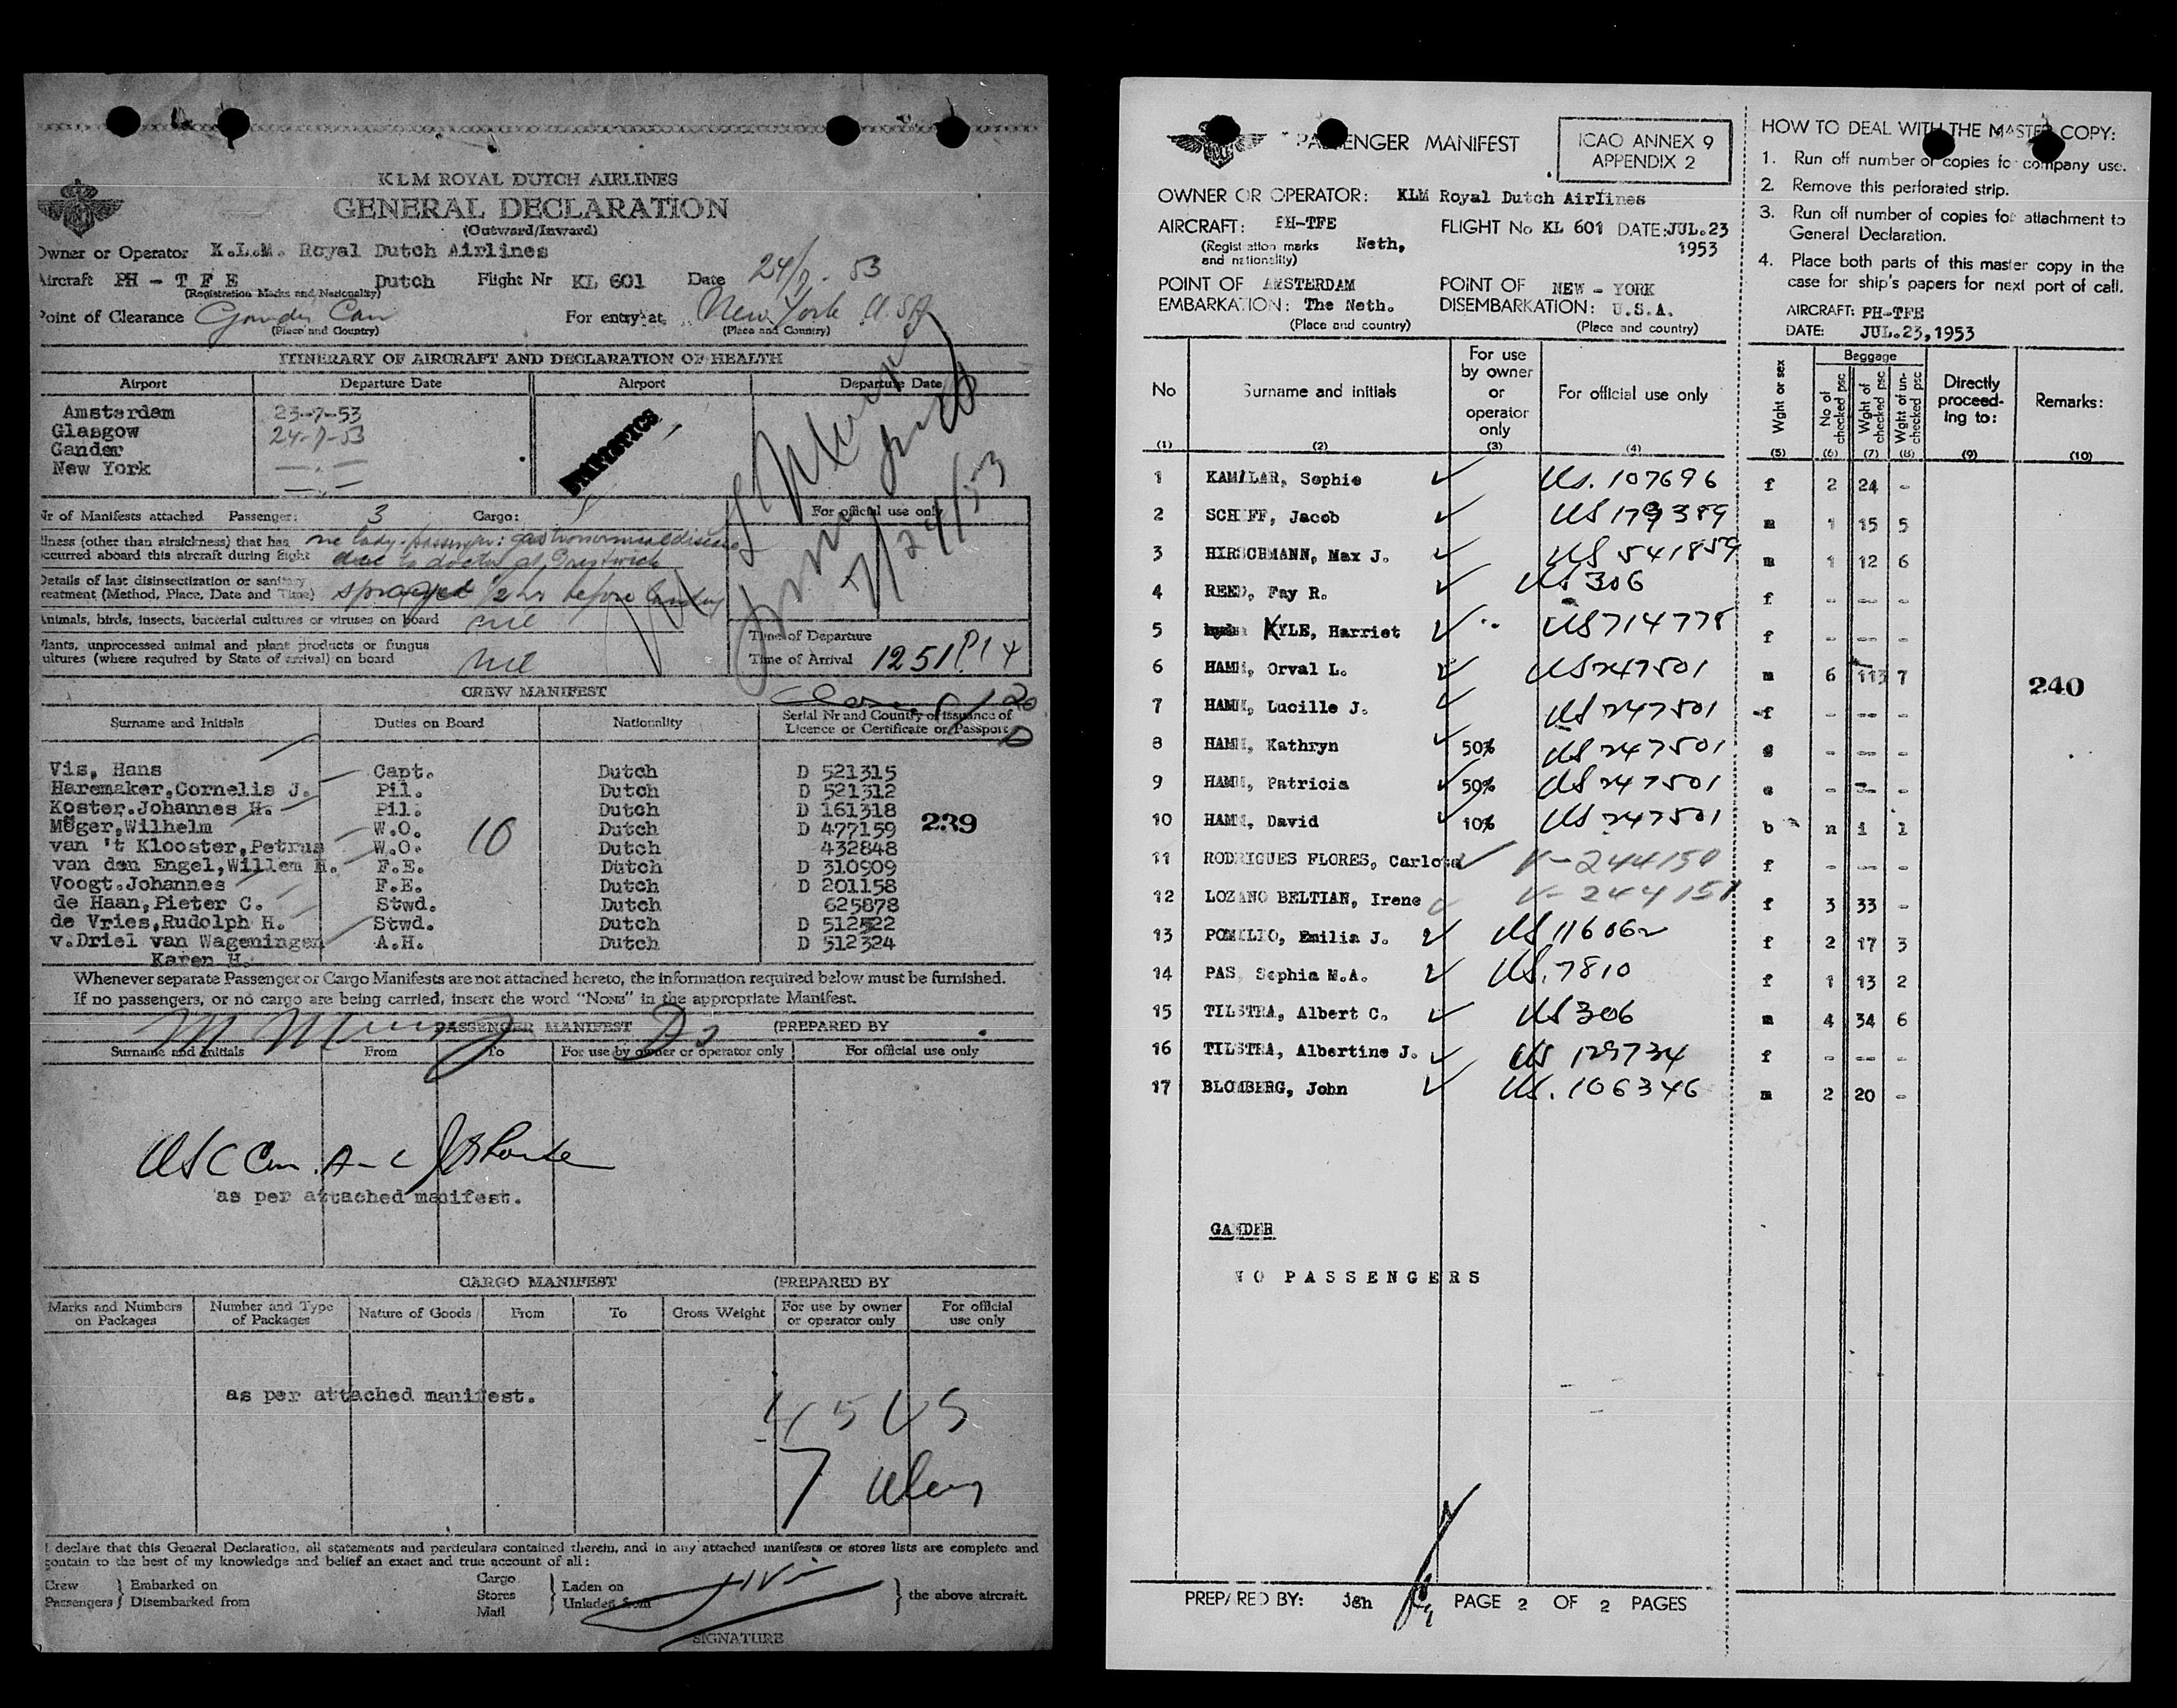 KLM ROYAL DUTCH AIRLINES
GENERAL DECLARATION
(Outward/Inward)
Owner or Operator K.L.M. Royal Dutch Airlines
Aircraft PH - T F E Dutch Flight Nr KL 601 Date 24/7 - 53
(Registration Marks and Nationality)
Point of Clearance Gander Can For entry at New York U.S.A
(Place and Country) (Place and Country)
ITINERARY OF AIRCRAFT AND DECLARATION OF HEALTH
Airport Departure Date Airport Departure Date
Amsterdam 23-7-53
Glasgow 24-7-53
Gander
New York
STATISTICS
7/24/53
Nr of Manifests attached Passenger: 3 Cargo:
For official use only
Illness (other than airsickness) that has one lady-passenger:
occurred aboard this aircraft during flight to doctor at Prestwick
Details of last disinsectization or sanitary
treatment (Method, Place, Date and Time) sprayed 1/2 hr before landing
Animals, birds, insects, bacterial cultures or viruses on board nil
Plants, unprocessed animal and plant products or fungus
cultures (where required by State of arrival) on board nil
Time of Departure
Time of Arrival 1251P
CREW MANIFEST
Surname and Initials Duties on Board Nationality Serial Nr and Country of issuance of
Licence or Certificate or Passport
Vis, Hans Capt. Dutch D 521315
Haremaker,Cornelis J. Pil. Dutch D 521312
Koster.Johannes H. Pil. Dutch D 161318
Möger,Wilhelm W.O. Dutch D 477159 239
van 't Klooster,Petrus W.O. 10 Dutch 432848
van den Engel,Willem H. F.E. Dutch D 310909
Voogt.Johannes F.E. Dutch D 201158
de Haan,Pieter C. Stwd. Dutch 625878
de Vries,Rudolph H. Stwd. Dutch D 512522
v.Driel van Wageningen A.H. Dutch D 512324
Karen H.
Whenever separate Passenger or Cargo Manifests are not attached hereto, the information required below must be furnished.
If no passengers, or no cargo are being carried, insert the word "NONE" in the appropriate Manifest.
PASSENGER MANIFEST (PREPARED BY
Surname and Initials From To For use by owner or operator only For official use only
as per attached manifest.
CARGO MANIFEST (PREPARED BY
Marks and Numbers on Packages Number and Type of Packages Nature of Goods From To Gross Weight For use by owner or operator only For official use only
as per attached manifest.
45 US
7
I declare that this General Declaration, all statements and particulars contained therein, and in any attached manifests or stores lists are complete and
contain to the best of my knowledge and belief an exact and true account of all:
Crew Embarked on Cargo Laden on
Passengers Disembarked from Stores Unladen from the above aircraft.
Mail
SIGNATURE
PASSENGER MANIFEST
ICAO ANNEX 9
APPENDIX 2
OWNER OR OPERATOR: KLM Royal Dutch Airlines
AIRCRAFT: PH-TFE FLIGHT No KL 601 DATE: JUL.23
(Registration marks and nationality) Neth, 1953
POINT OF AMSTERDAM POINT OF NEW - YORK
EMBARKATION: The Neth. DISEMBARKATION: U.S.A.
(Place and country) (Place and country)
No Surname and initials For use by owner or operator only For official use only
(1) (2) (3) (4)
1 KAMILAR, Sophie US. 107696
2 SCHIFF, Jacob US 179389
3 HIRSCHMANN, Max J. US 541859
4 REED, Fay R. US 306
5 KYLE, Harriet US 714778
6 HAMM, Orval L. US 247501
7 HAMM, Lucille J. US 247501
8 HAMM, Kathryn 50% US 247501
9 HAMM, Patricia 50% US 247501
10 HAMM, David 10% US 247501
11 RODRIGUES FLORES, Carlota V-244150
12 LOZANO BELTIAN, Irene V-244151
13 POMILIO, Emilia J. US 116062
14 PAS, Sophia M.A. US. 7810
15 TILSTRA, Albert C. US 306
16 TILSTRA, Albertine J. US 129734
17 BLOMBERG, John US. 106346
GANDER
NO PASSENGERS
PREPARED BY: jsh PAGE 2 OF 2 PAGES
HOW TO DEAL WITH THE MASTER COPY:
1. Run off number of copies for company use.
2. Remove this perforated strip.
3. Run off number of copies for attachment to
General Declaration.
4. Place both parts of this master copy in the
case for ship's papers for next port of call.
AIRCRAFT: PH-TFE
DATE: JUL.23,1953
Beggage
Wght or sex No of checked psc Wght of checked psc Wght of unchecked psc Directly proceeding to: Remarks:
(5) (6) (7) (8) (9) (10)
f 2 24 -
m 1 15 5
m 1 12 6
f - -- -
f - -- -
m 6 113 7
240
f - -- -
- -- -
- -- -
b n i l
f - -- -
f 3 33 -
f 2 17 3
f 1 13 2
m 4 34 6
f - -- -
m 2 20 -